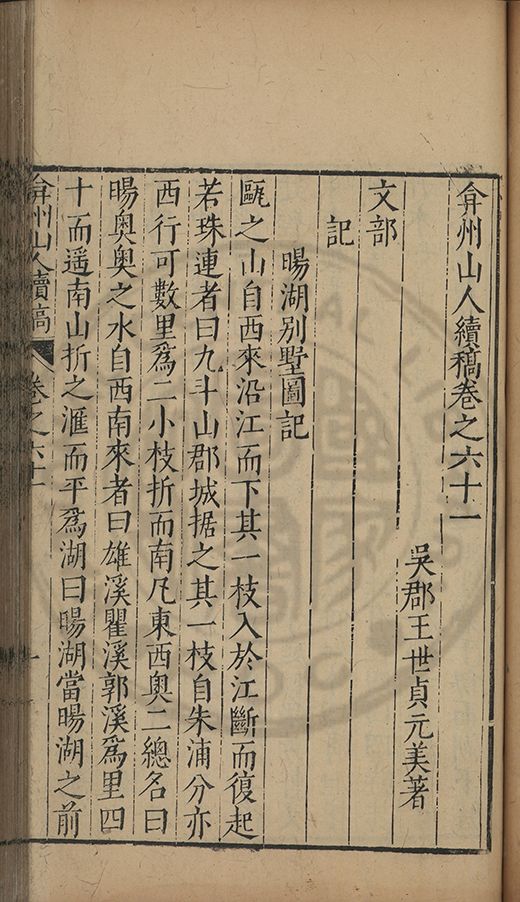 弇州山人續稿卷之六十一
吳郡王世貞元美著
文部
記
暘湖別墅圖記
甌之山自西來沿江而下其一枝入於江斷而復起
若珠連者曰九斗山郡城据之其一枝自朱浦分亦
西行可數里爲二小枝折而南凡東西奧二總名曰
暘奧奧之水自西南來者曰雄溪瞿溪郭溪爲里四
十而遥南山折之滙而平爲湖曰暘湖當暘湖之前
弇州山人續稿
卷之六十一
一